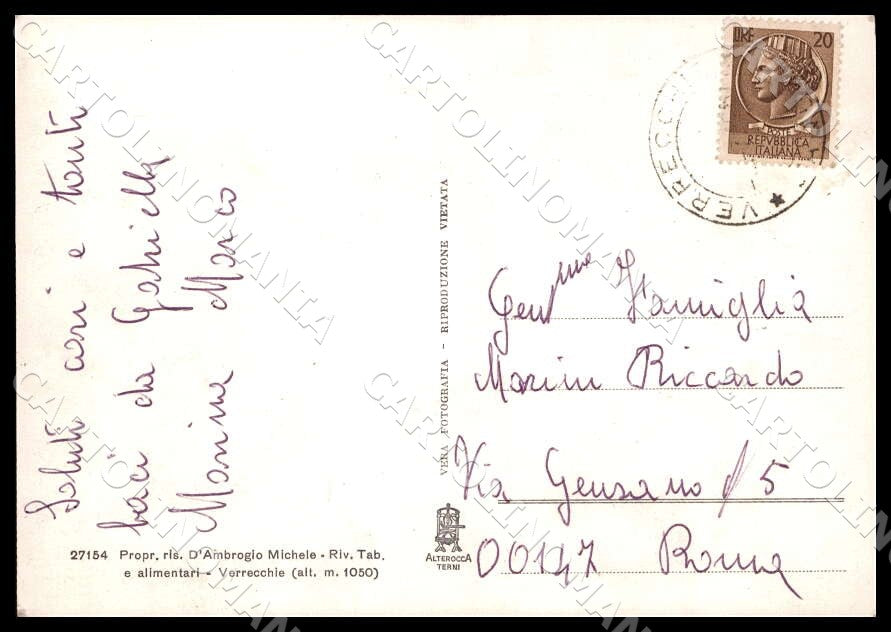 Saluti cari e tanti
baci da Gabriella
Marina Marco
27154 Propr. ris. D'Ambrogio Michele - Riv. Tab.
e alimentari - Verrecchie (alt. m. 1050)
VERA FOTOGRAFIA - RIPRODUZIONE VIETATA
ALTEROCCA
TERNI
LIRE 20
POSTE
REPVBBLICA
ITALIANA
Gen.me Famiglia
Marini Riccardo
Via Genzano 5
00147 Roma
CARTOLINOMANIA
CARTOLINOMANIA
CARTOLINOMANIA
CARTOLINOMANIA